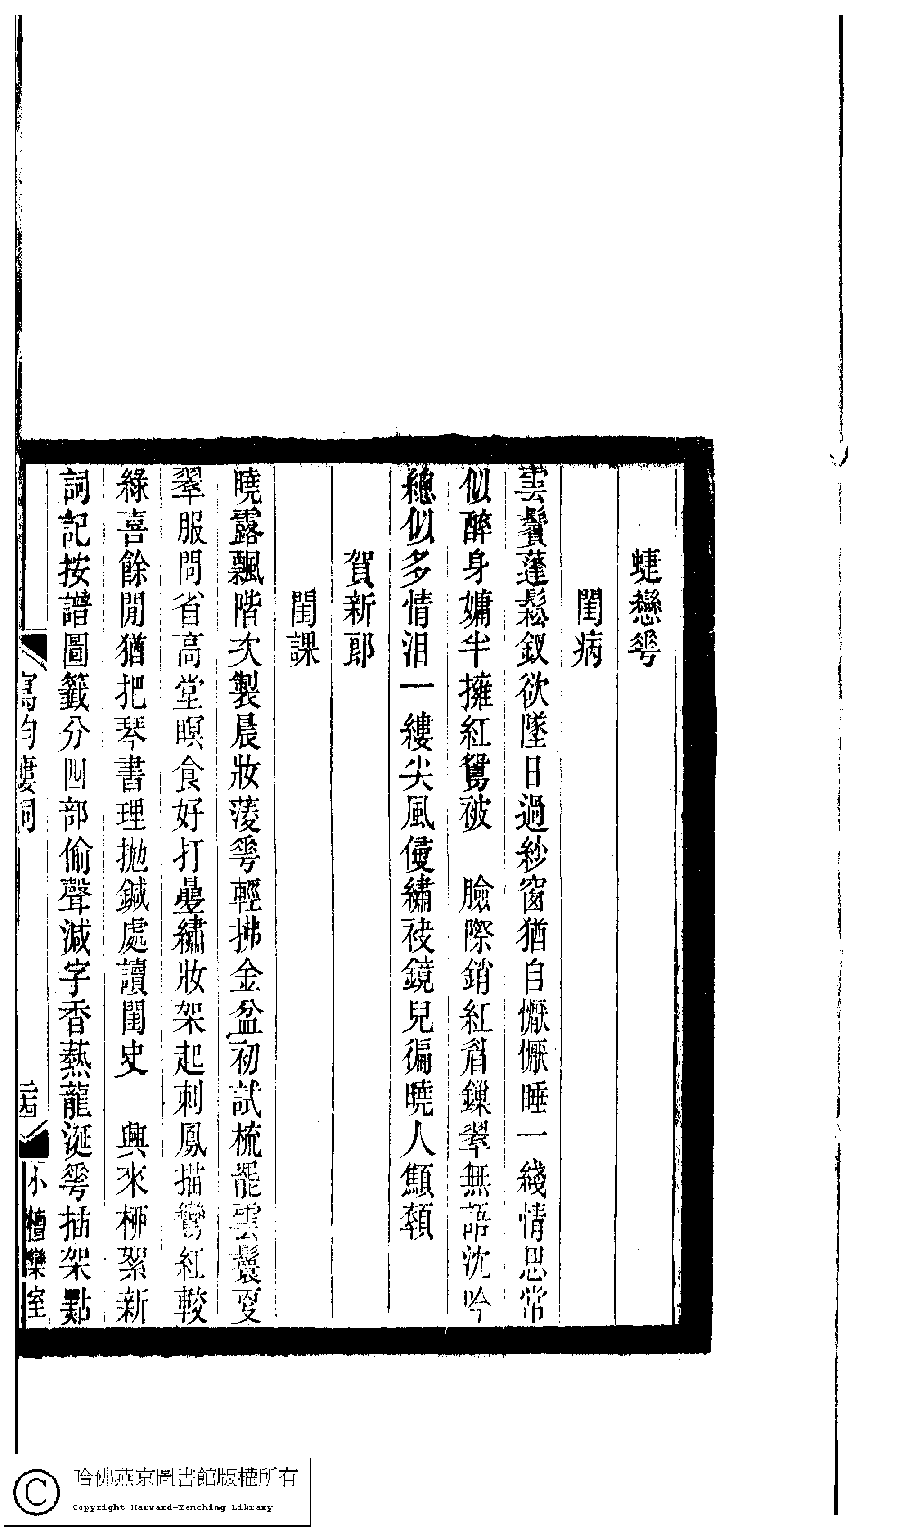 蜨戀芌
閨病
雲鬢蓬鬆釵欲墜日過紗窗猶自懨懨睡一綫情思常
似醉身慵半擁紅鴛被　臉際銷紅眉鏁翠無語沈吟
總似多情泪一縷尖風侵繡袯鏡兒徧曉人顦顇
賀新郎
閨課
曉露飄階次製晨妝蔆芌輕拂金盆初試梳罷雲鬟更
翠服問省高堂瞑食好打曡繡妝架起刺鳳描鸞紅較
綠喜餘閒猶把琴書理拋鍼處讀閨史　興來桺絮新
詞記按譜圖籤分四部偷聲減字香爇龍涎芌插架點
寫韵樓詞
二四
小檀欒室
哈佛燕京圖書館版權所有
Copyright Harvard-Yenching Library